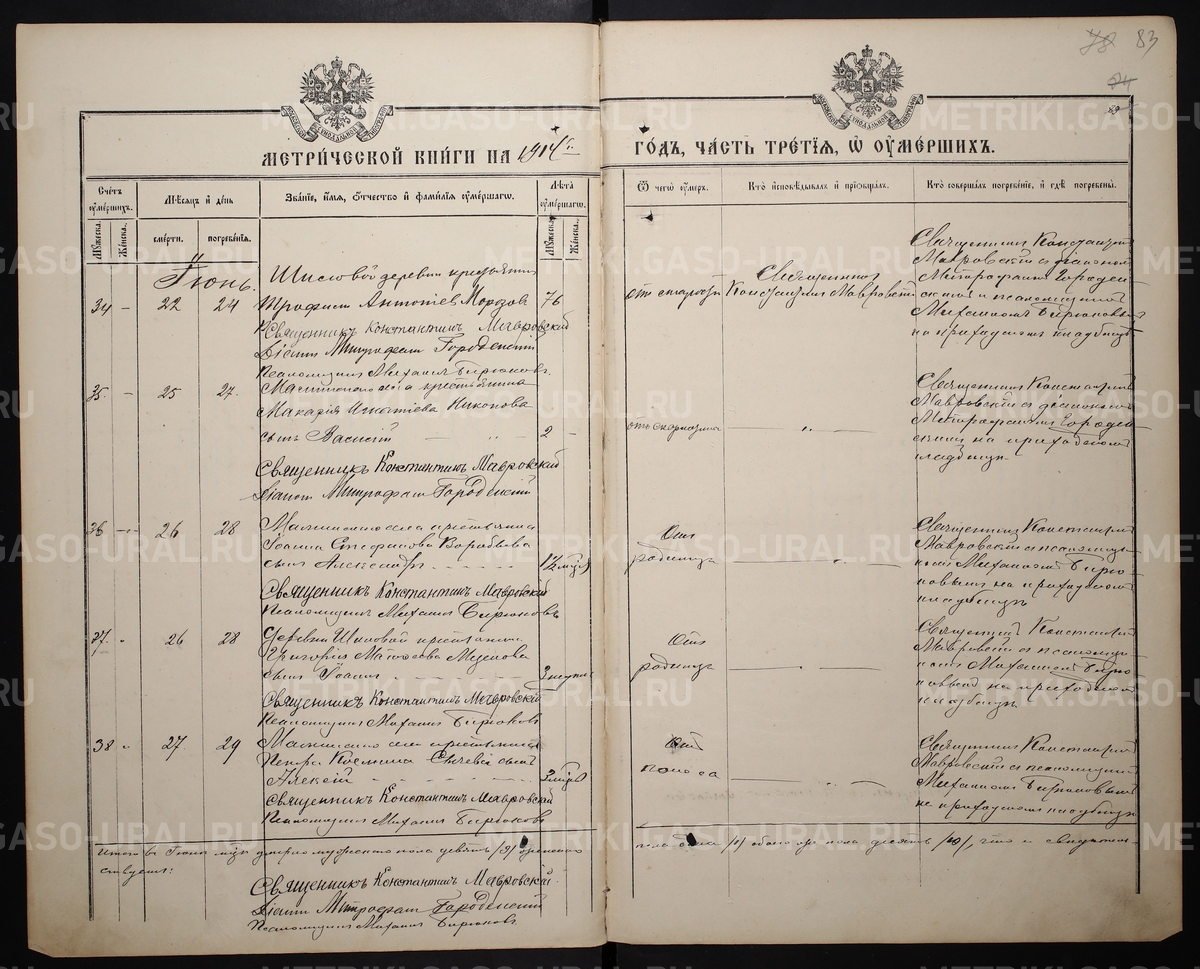 78 83
МЕТРИЧЕСКОЙ КНИГИ НА 1914й
ГОДЪ, ЧАСТЬ ТРЕТІЯ, Ѡ ОУМЕРШИХЪ.
Счетъ оумершихъ.
Мужеска.
Женска.
Мѣсяцъ и день
смерти.
погребенія.
Званіе, имя, отчество и фамилія оумершагѡ.
Лѣта оумершагѡ.
Мужеска.
Женска.
Ѿ чегѡ оумеръ.
Кто исповѣдывалъ и пріобщалъ.
Кто совершалъ погребеніе, и гдѣ погребены.
Іюнь.
деревни крестьянинъ
34 – 22 24 Трофимъ Антоніевъ 76
отъ старости
Священникъ
Константинъ Мавровскій
Священникъ Константинъ
Мавровскій съ діакономъ
Митрофаномъ Городен-
скимъ и псаломщикомъ
Михаиломъ Бирюковымъ
на приходскомъ кладбищѣ
Священникъ Константинъ Мавровскій
Діаконъ Митрофанъ Городенскій
Псаломщикъ Михаилъ Бирюковъ.
35. – 25 27. села крестьянина
Макарія Игнатіева
сынъ Василій – „ – 2 –
– „ –
Священникъ Константинъ
Мавровскій съ діакономъ
Митрофаномъ Городен-
скимъ на приходскомъ
кладбищѣ
Священникъ Константинъ Мавровскій
Діаконъ Митрофанъ Городенскій
36 – 26 28 села крестьянина
Іоанна Стефанова Воробьева
сынъ Александръ
Отъ
родимца
– „ –
Священникъ Константинъ
Мавровскій съ псаломщи-
комъ Михаиломъ Бирю-
ковымъ на приходскомъ
кладбищѣ
Священникъ Константинъ Мавровскій
Псаломщикъ Михаилъ Бирюковъ
37. „ 26 28 Деревни крестьянина
Григорія
сынъ Іоаннъ
Отъ
родимца
– „ –
Священникъ Константинъ
Мавровскій съ псаломщи-
комъ Михаиломъ Бирю-
ковымъ на приходскомъ
кладбищѣ
Священникъ Константинъ Мавровскій
Псаломщикъ Михаилъ Бирюковъ
38 „ 27. 29 села крестьянина
Петра Космина сынъ
Алексій
Отъ
поноса
– „ –
Священникъ Константинъ
Мавровскій съ псаломщикомъ
Михаиломъ Бирюковымъ
на приходскомъ кладбищѣ
Священникъ Константинъ Мавровскій
Псаломщикъ Михаилъ Бирюковъ
Итого въ Іюнѣ мѣс. умерло мужескаго пола девять /9/ женскаго
пола одна /1/ обоего же пола десять /10/, что и свидѣтель-
ствуемъ:
Священникъ Константинъ Мавровскій.
Діаконъ Митрофанъ Городенскій
Псаломщикъ Михаилъ Бирюковъ
METRIKI.GASO-URAL.RU